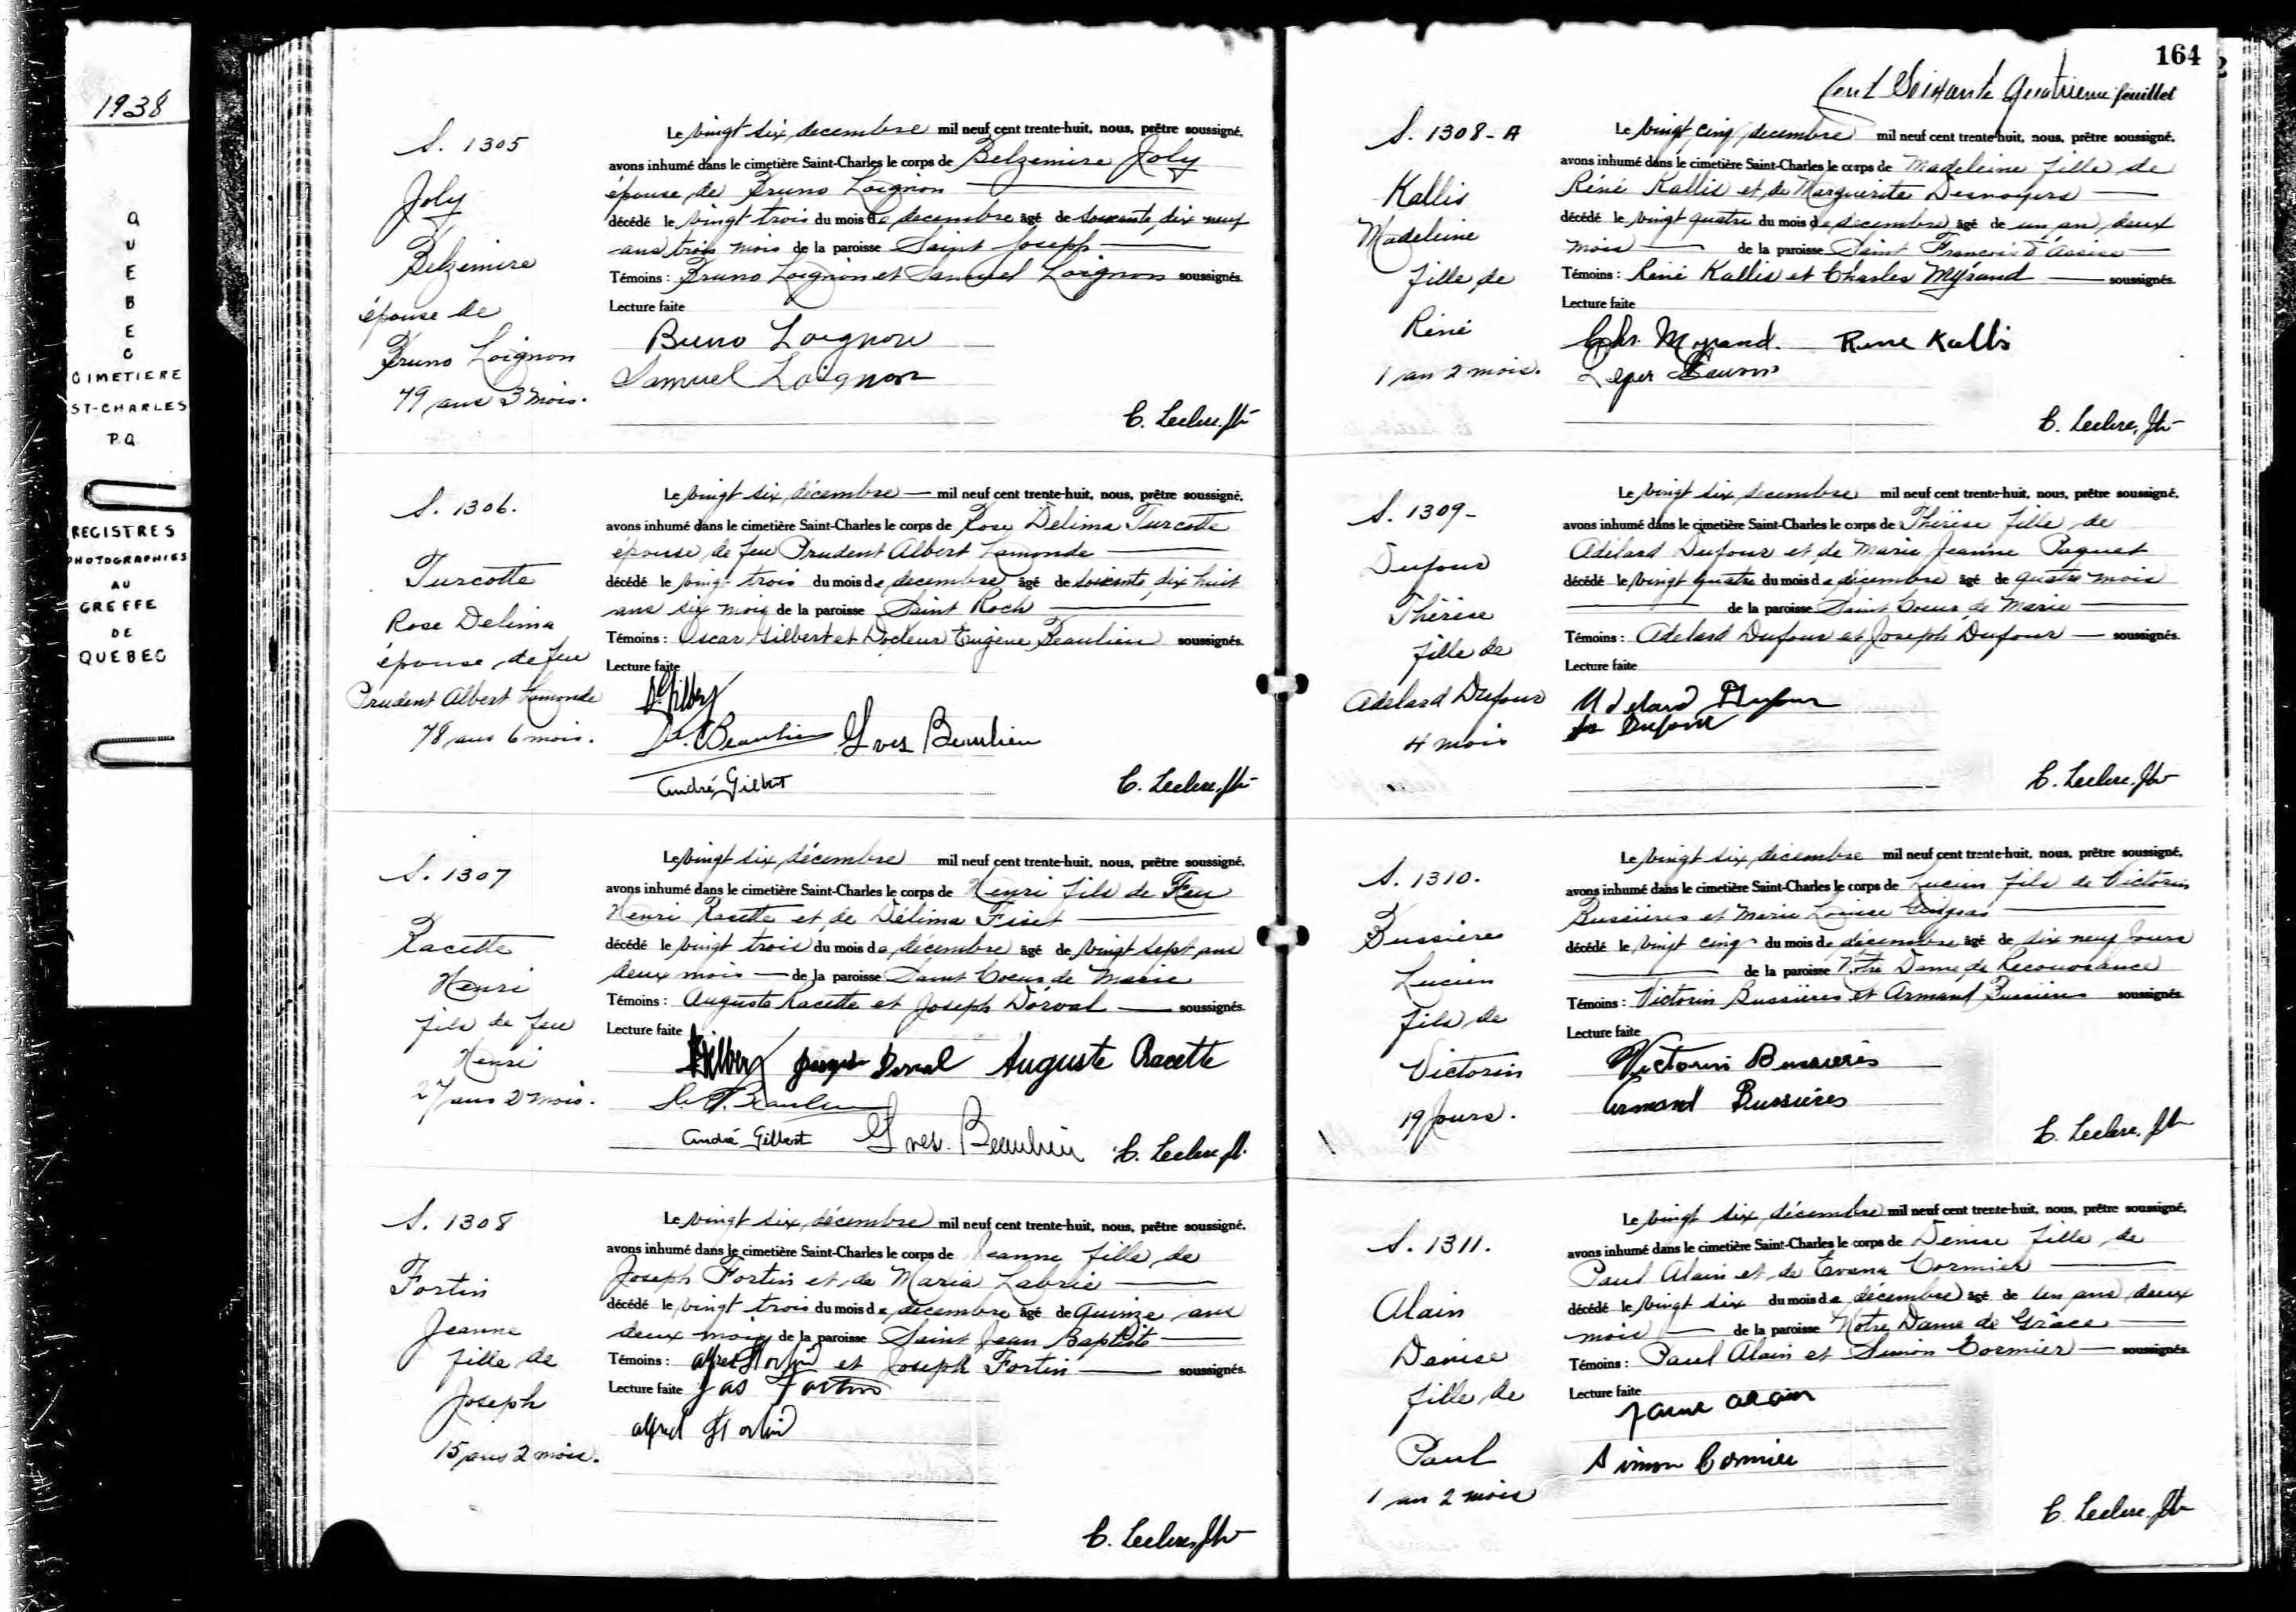 1938
QUEBEC
CIMETIERE
ST-CHARLES
P.Q
REGISTRES
PHOTOGRAPHIES
AU
GREFFE
DE
QUEBEC
S. 1305
Joly
Belzemire
épouse de
Bruno Loignon
79 ans 3 mois.
Le vingt six decembre mil neuf cent trente-huit, nous, prêtre soussigné,
avons inhumé dans le cimetière Saint-Charles le corps de Belzemire Joly
épouse de Bruno Loignon
décédé le vingt trois du mois de decembre âgé de soixante dix neuf
ans trois mois de la paroisse Saint Joseph
Témoins : Bruno Loignon et Samuel Loignon soussignés.
Lecture faite
Bruno Loignon
Samuel Loignon
C. Leclerc, ptr
S. 1306.
Turcotte
Rose Delima
épouse de feu
Prudent Albert Lamonde
78 ans 6 mois.
Le vingt six décembre mil neuf cent trente-huit, nous, prêtre soussigné,
avons inhumé dans le cimetière Saint-Charles le corps de Rose Délima Turcotte
épouse de feu Prudent Albert Lamonde
décédé le vingt trois du mois de decembre âgé de soixante dix huit
ans six mois de la paroisse Saint Roch
Témoins : Oscar Gilbert et Docteur Eugène Beaulieu soussignés.
Lecture faite
Gilbert
Beaulieu Yves Beaulieu
André Gilbert
C. Leclerc, ptr
S. 1307
Racette
Henri
fils de feu
Henri
27 ans 2 mois.
Le vingt six décembre mil neuf cent trente-huit, nous, prêtre soussigné,
avons inhumé dans le cimetière Saint-Charles le corps de Henri fils de Feu
Henri Racette et de Délima Fiset
décédé le vingt trois du mois de décembre âgé de vingt sept ans
deux mois de la paroisse Saint Coeur de Marie
Témoins : Auguste Racette et Joseph Dorval soussignés.
Lecture faite
Gilbert Joseph Dorval Auguste Racette
Beaulieu
André Gilbert Yves. Beaulieu C. Leclerc, pt.
S. 1308
Fortin
Jeanne
fille de
Joseph
15 ans 2 mois.
Le vingt six décembre mil neuf cent trente-huit, nous, prêtre soussigné,
avons inhumé dans le cimetière Saint-Charles le corps de Jeanne fille de
Joseph Fortin et de Maria Labrie
décédé le vingt trois du mois de decembre âgé de quinze ans
deux mois de la paroisse Saint Jean Baptiste
Témoins : Alfred Fortin et Joseph Fortin soussignés.
Lecture faite Jos Fortin
Alfred Fortin
C. Leclerc, ptr
164
Cent Soixante Quatrieme feuillet
S. 1308-A
Kallis
Madeleine
fille de
Réné
1 an 2 mois.
Le vingt cinq decembre mil neuf cent trente-huit, nous, prêtre soussigné,
avons inhumé dans le cimetière Saint-Charles le corps de Madeleine fille de
Réné Kallis et de Marguerite Desnoyers
décédé le vingt quatre du mois de decembre âgé de un an deux
mois de la paroisse Saint François d'Assise
Témoins : Réné Kallis et Charles Myrand soussignés.
Lecture faite
Chs. Myrand. Rene Kallis
Leger
C. Leclerc, ptr
S. 1309-
Dufour
Thérèse
fille de
Adelard Dufour
4 mois
Le vingt six decembre mil neuf cent trente-huit, nous, prêtre soussigné,
avons inhumé dans le cimetière Saint-Charles le corps de Thérèse fille de
Adélard Dufour et de Marie Jeanne Paquet
décédé le vingt quatre du mois de décembre âgé de quatre mois
de la paroisse Saint Coeur de Marie
Témoins : Adelard Dufour et Joseph Dufour soussignés.
Lecture faite
Adelard Dufour
Jos Dufour
C. Leclerc, ptr
S. 1310.
Bussières
Lucien
fils de
Victorin
19 Jours.
Le vingt six décembre mil neuf cent trente-huit, nous, prêtre soussigné,
avons inhumé dans le cimetière Saint-Charles le corps de Lucien fils de Victorin
Bussières et Marie Louise Gingras
décédé le vingt cinq du mois de décembre âgé de dix neuf Jours
de la paroisse Notre Dame de Recouvrance
Témoins : Victorin Bussières et Armand Bussières soussignés
Lecture faite
Victorin Bussières
Armand Bussières
C. Leclerc, ptr
S. 1311.
Alain
Denise
fille de
Paul
1 an 2 mois
Le vingt six décembre mil neuf cent trente-huit, nous, prêtre soussigné,
avons inhumé dans le cimetière Saint-Charles le corps de Denise fille de
Paul Alain et de Evana Cormier
décédé le vingt six du mois de décembre âgé de un ans deux
mois de la paroisse Notre Dame de Grâce
Témoins : Paul Alain et Simon Cormier soussignés
Lecture faite
Alain
Simon Cormier
C. Leclerc, ptr